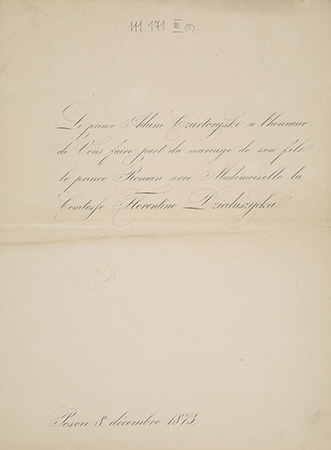 111 171 III (5)
Le prince Adam Czartoryski a l'honneur
de Vous faire part du mariage de son fils
le prince Roman avec Mademoiselle la
Comtesse Florentine Dzieduszycka.
Posen 8 décembre 1873.